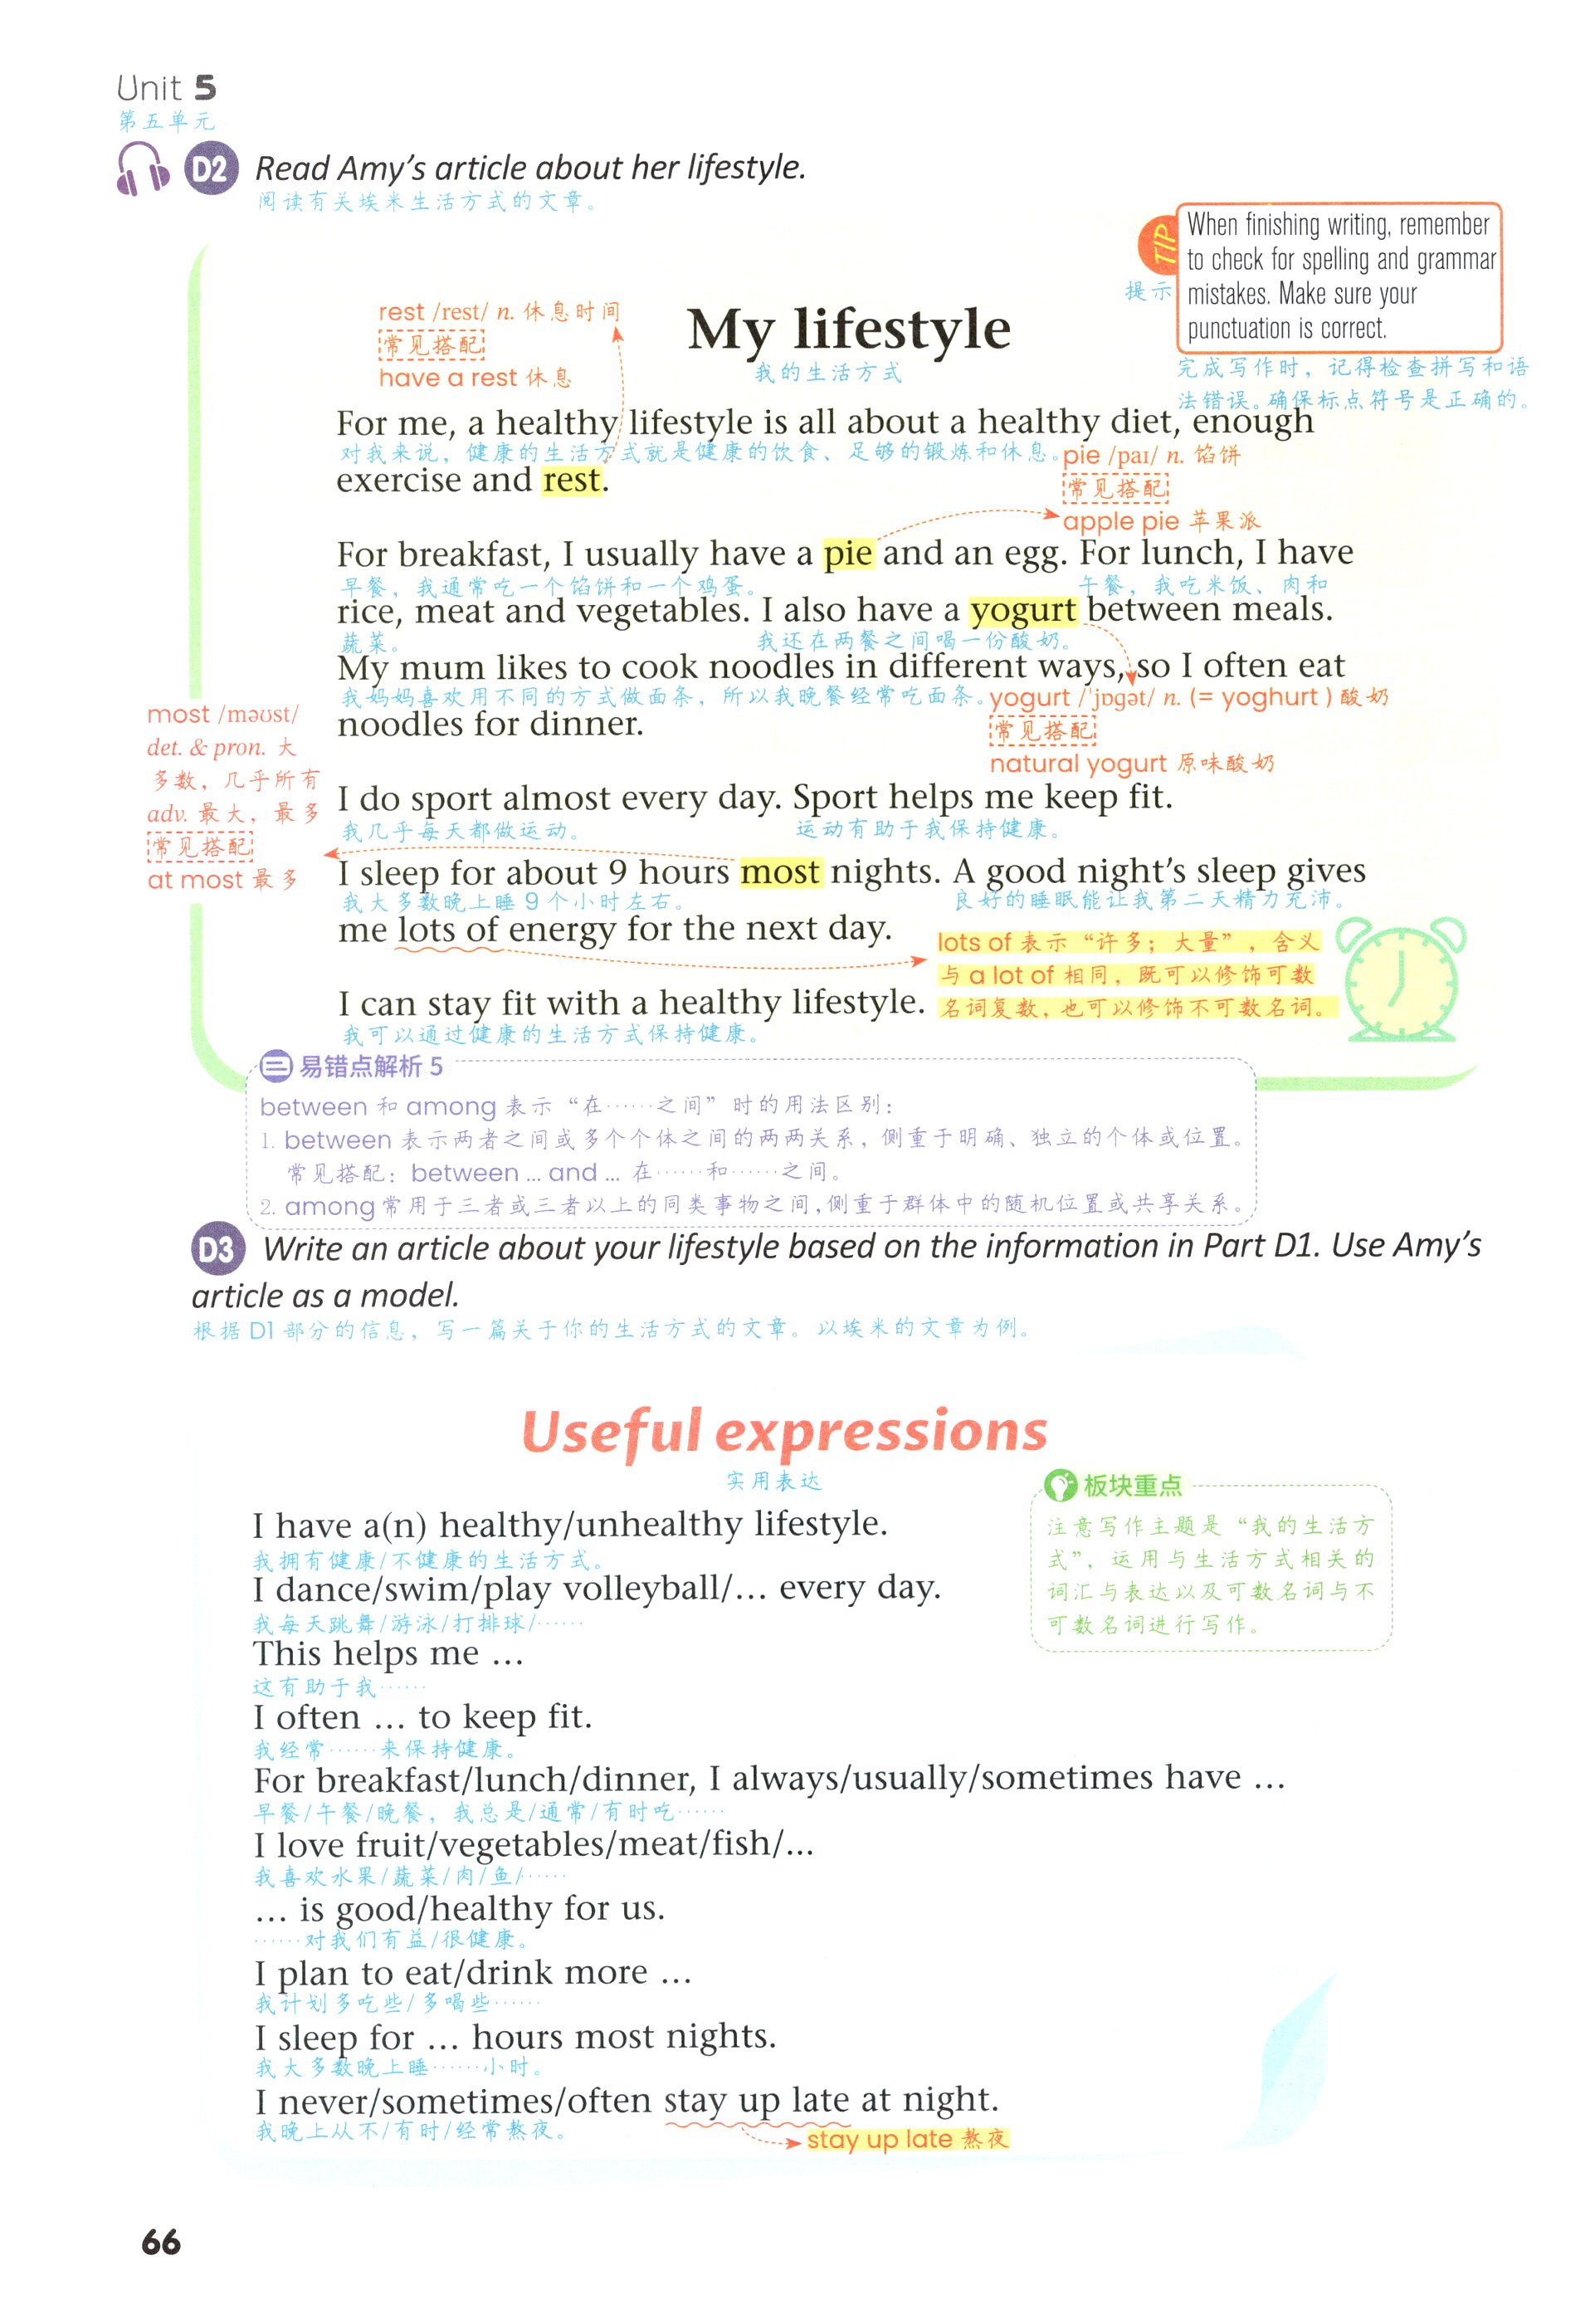 Unit 5
第五单元
D2 Read Amy's article about her lifestyle.
阅读有关埃米生活方式的文章。
TIP
提示
When finishing writing, remember
to check for spelling and grammar
mistakes. Make sure your
punctuation is correct.
完成写作时，记得检查拼写和语
法错误。确保标点符号是正确的。
rest /rest/ n. 休息时间
常见搭配
have a rest 休息
My lifestyle
我的生活方式
For me, a healthy lifestyle is all about a healthy diet, enough
对我来说，健康的生活方式就是健康的饮食、足够的锻炼和休息。
exercise and rest.
pie /paɪ/ n. 馅饼
常见搭配
apple pie 苹果派
For breakfast, I usually have a pie and an egg. For lunch, I have
早餐，我通常吃一个馅饼和一个鸡蛋。 午餐，我吃米饭、肉和
rice, meat and vegetables. I also have a yogurt between meals.
蔬菜。 我还在两餐之间喝一份酸奶。
My mum likes to cook noodles in different ways, so I often eat
我妈妈喜欢用不同的方式做面条，所以我晚餐经常吃面条。
noodles for dinner.
yogurt /ˈjɒɡət/ n. (= yoghurt ) 酸奶
常见搭配
natural yogurt 原味酸奶
most /məʊst/
det. & pron. 大
多数，几乎所有
adv. 最大，最多
常见搭配
at most 最多
I do sport almost every day. Sport helps me keep fit.
我几乎每天都做运动。 运动有助于我保持健康。
I sleep for about 9 hours most nights. A good night's sleep gives
我大多数晚上睡 9 个小时左右。 良好的睡眠能让我第二天精力充沛。
me lots of energy for the next day.
lots of 表示“许多；大量”，含义
与 a lot of 相同，既可以修饰可数
名词复数，也可以修饰不可数名词。
I can stay fit with a healthy lifestyle.
我可以通过健康的生活方式保持健康。
易错点解析 5
between 和 among 表示“在……之间”时的用法区别：
1. between 表示两者之间或多个个体之间的两两关系，侧重于明确、独立的个体或位置。
常见搭配：between ... and ... 在……和……之间。
2. among 常用于三者或三者以上的同类事物之间，侧重于群体中的随机位置或共享关系。
D3 Write an article about your lifestyle based on the information in Part D1. Use Amy's
article as a model.
根据 D1 部分的信息，写一篇关于你的生活方式的文章。以埃米的文章为例。
Useful expressions
实用表达
板块重点
注意写作主题是“我的生活方
式”，运用与生活方式相关的
词汇与表达以及可数名词与不
可数名词进行写作。
I have a(n) healthy/unhealthy lifestyle.
我拥有健康/不健康的生活方式。
I dance/swim/play volleyball/... every day.
我每天跳舞/游泳/打排球/……
This helps me ...
这有助于我……
I often ... to keep fit.
我经常……来保持健康。
For breakfast/lunch/dinner, I always/usually/sometimes have ...
早餐/午餐/晚餐，我总是/通常/有时吃……
I love fruit/vegetables/meat/fish/...
我喜欢水果/蔬菜/肉/鱼/……
... is good/healthy for us.
……对我们有益/很健康。
I plan to eat/drink more ...
我计划多吃些/多喝些……
I sleep for ... hours most nights.
我大多数晚上睡……小时。
I never/sometimes/often stay up late at night.
我晚上从不/有时/经常熬夜。
stay up late 熬夜
66